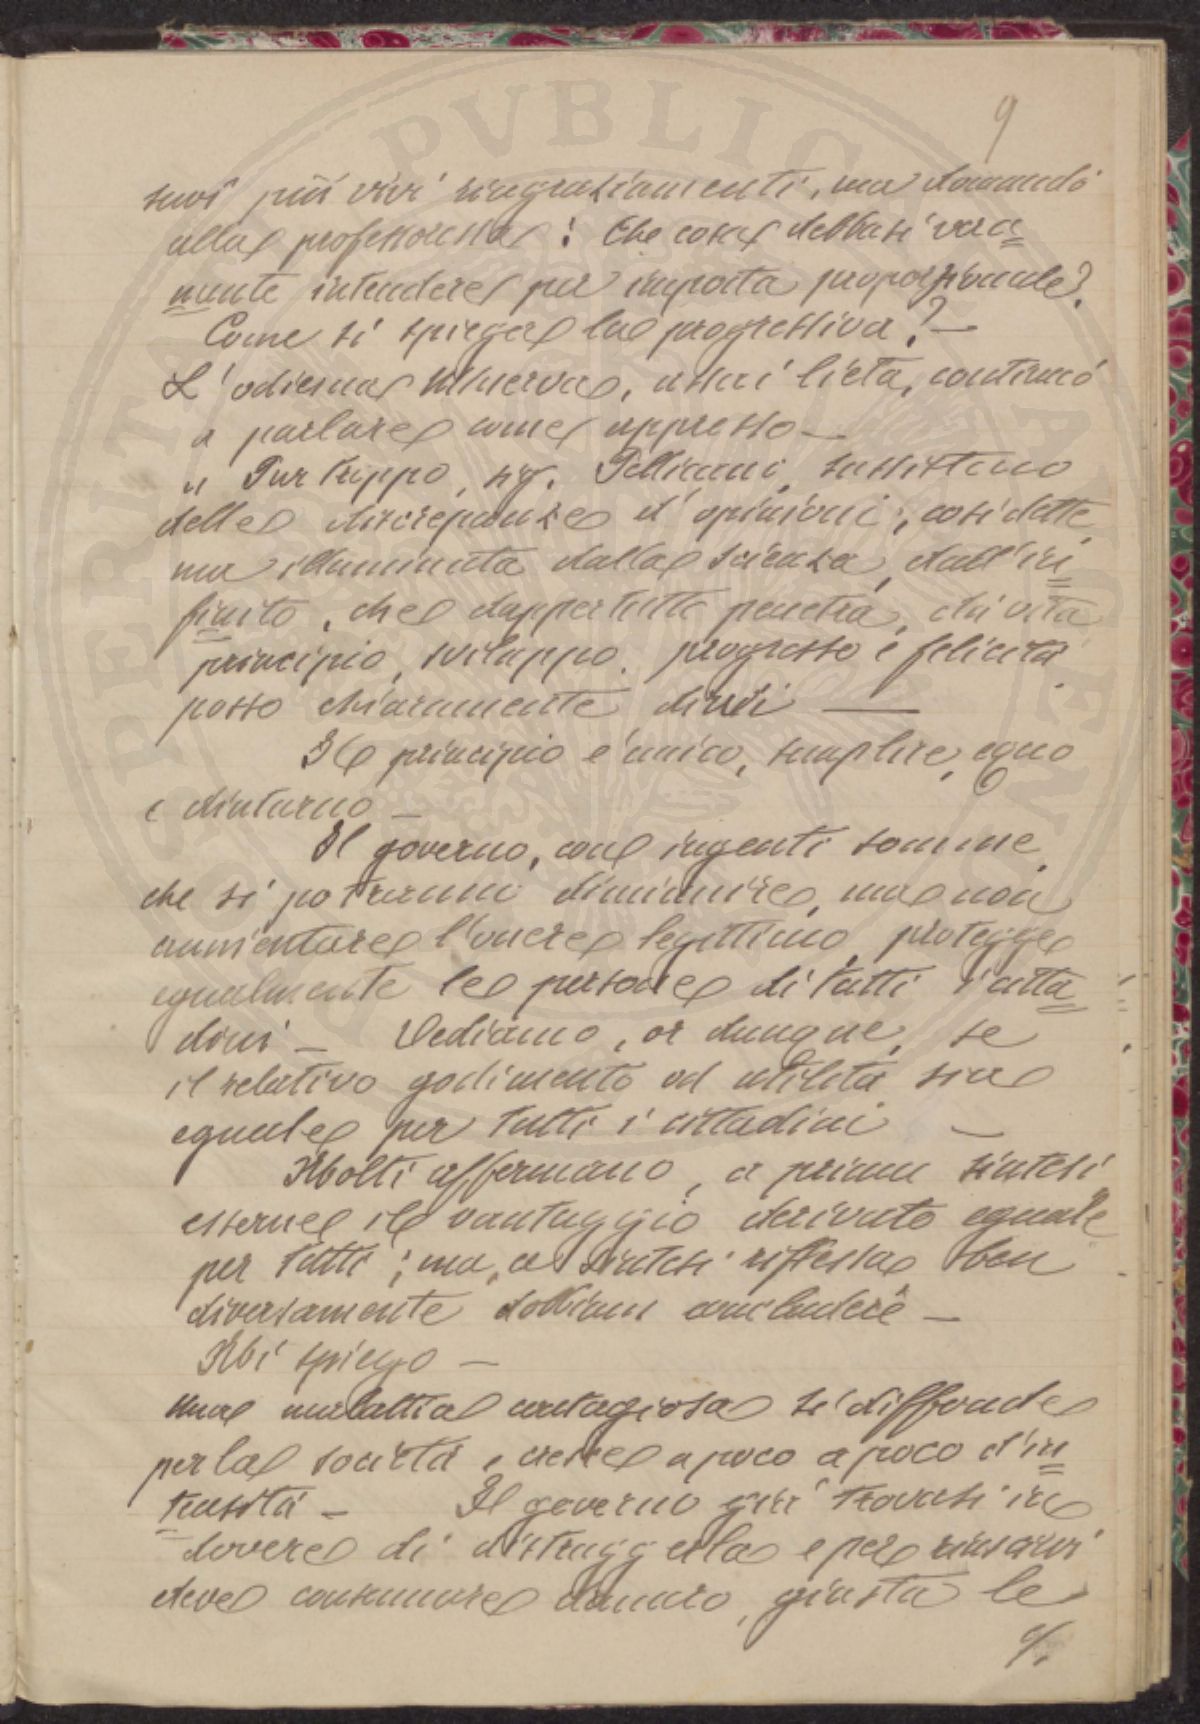 9
suoi più vivi ringraziamenti, ma domandò
alla professoressa: Che cosa debbasi vera=
mente intendere per imposta proporzionale?
Come si spiega la progressiva? —
L'odierna Minerva, assai lieta, continuò
a parlare come appresso —
„ Pur troppo, sig. Pellicani, sussistono
delle discrepanze d'opinioni, così dette,
ma illuminata dalla scienza, dall'in=
finito, che dappertutto penetra, dà vita
principio, sviluppo, progresso e felicità
posso chiaramente dirvi —
Il principio è unico, semplice, equo
e diuturno —
Il governo, con ingenti somme,
che si potranno diminuire, ma non
aumentare l'onere legittimo, protegge
egualmente le persone di tutti i citta=
dini — Vediamo, or dunque, se
il relativo godimento od utilità sia
eguale per tutti i cittadini —
Molti affermano, a prima sintesi,
esserne il vantaggio derivato eguale
per tutti; ma, a sintesi riflessa ben
diversamente dobbiam concludere —
Mi spiego —
Una malattia contagiosa si diffonde
per la società e cresce a poco a poco d'in=
tensità — Il governo già trovasi in
dovere di distruggerla e per riuscirvi
deve consumare danaro, giusta le
%.
PVBLICA